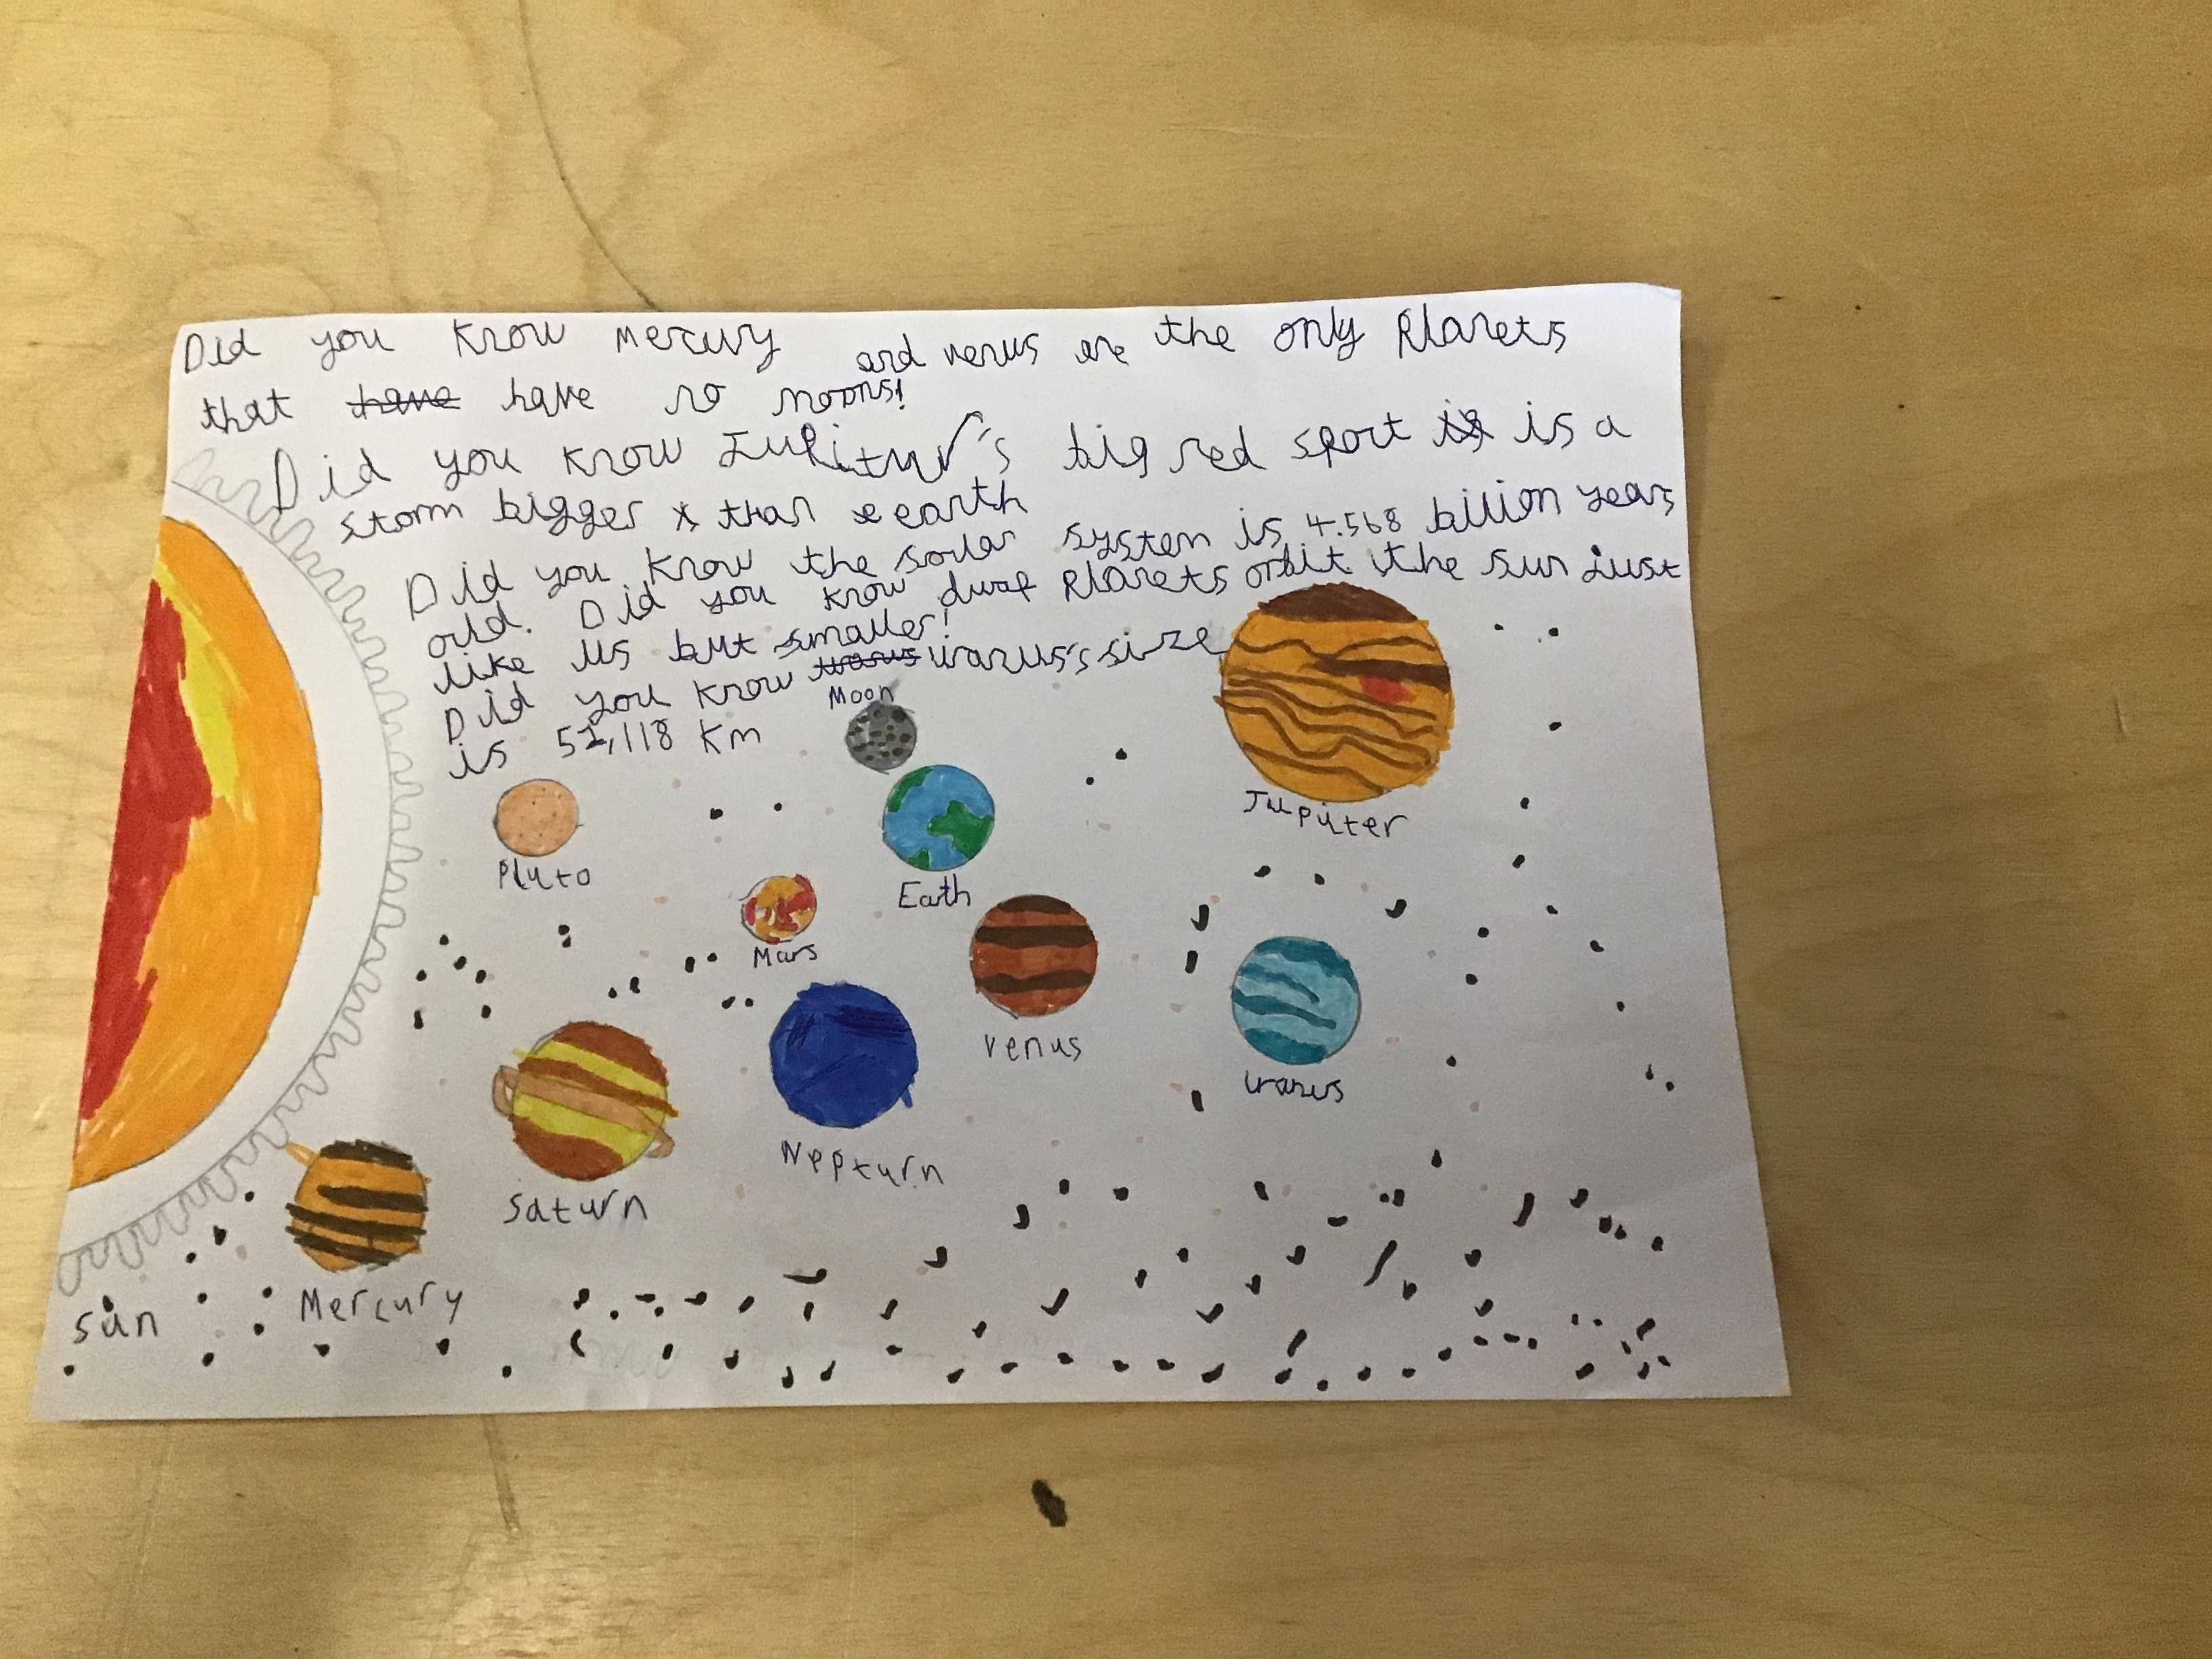 Did you know Mercury and venus are the only Planets
that have have no moons!
Did you know Jupitur's big red sport is is a
storm bigger than e earth
Did you know the soolar system is 4.568 billion years
orld. Did you know dwarf Planets orbit the sun Just
like us but smaller!
Did you know uranus uranus's size
is 51,118 Km
Moon
Pluto
Earth
Jupiter
Mars
venus
uranus
Nepturn
Saturn
Mercury
sun